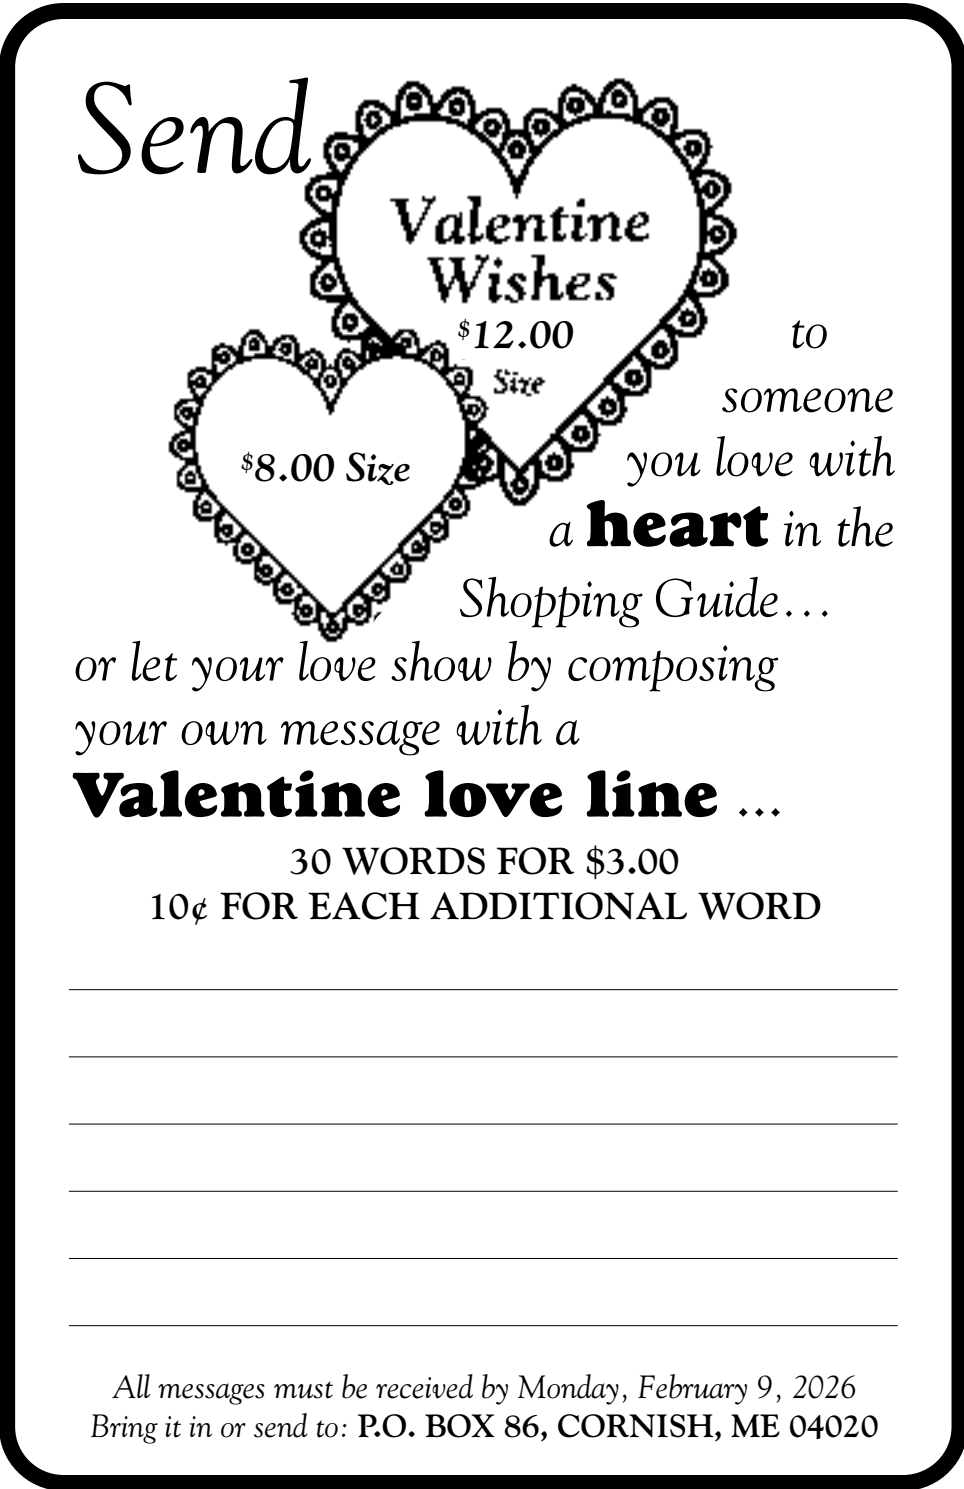 Send
Valentine
Wishes
$12.00
Size
$8.00 Size
to
someone
you love with
a heart in the
Shopping Guide…
or let your love show by composing
your own message with a
Valentine love line ...
30 WORDS FOR $3.00
10¢ FOR EACH ADDITIONAL WORD
All messages must be received by Monday, February 9, 2026
Bring it in or send to: P.O. BOX 86, CORNISH, ME 04020